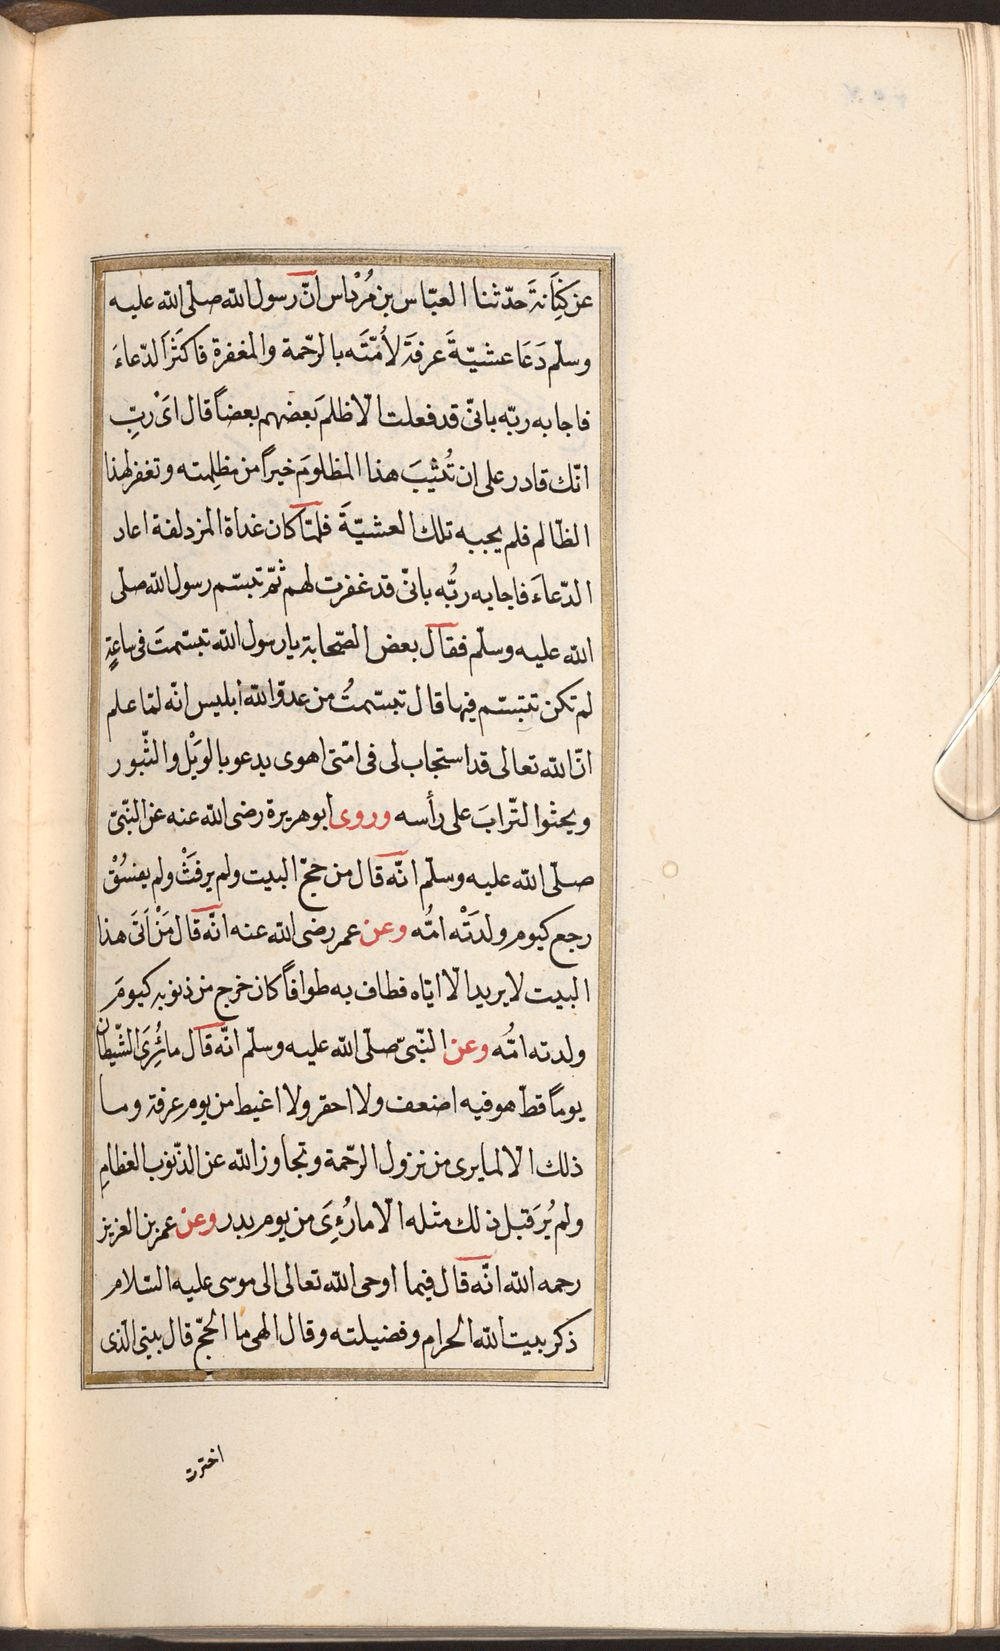 عن كِنَانةَ حدّثنا العبّاس بن مُرْداس انّ رسول الله صلّى الله عليه
وسلّم دَعَا عشيّةَ عرفةَ لأُمّتَه بالرّحمة والمغفرة فاكثَرَ الدّعاءَ
فاجابه ربّه بانّى قد فعلت الّا ظلمَ بعضهم بعضاً قال اىْ ربِّ
انّك قادر على ان تُثيبَ هذا المظلومَ خيراً من مظلِمته وتغفر لهذا
الظّالم فلم يجبه تلك العشيّةَ فلمّا كان غداة المزدلفة اعاد
الدّعاءَ فاجابه ربُّه بانّى قد غفرت لهم ثمّ تبسّم رسول الله صلّى
الله عليه وسلّم فقال بعض الصّحابة يا رسول الله تبسّمتَ فى ساعةٍ
لم تكن تتبسّم فيها قال تبسّمتُ من عدوّ الله ابليس انه لمّا علم
انّ الله تعالى قد استجاب لى فى امّتى اهوى يدعو بالوَيْل والثّبور
ويحثوا التّرابَ على رأسه وروى ابو هريرة رضى الله عنه عن النّبىّ
صلّى الله عليه وسلّم انّه قال من حجّ البيت ولم يرفَثْ ولم يفسُقْ
رجع كيوم ولدَتْه امُّه وعن عمر رضى الله عنه انّه قال مَنْ اَتَى هذا
البيت لا يريد الّا ايّاه فطاف به طوافاً كان خرج من ذنوبه كيومَ
ولدته امُّه وعن النّبىّ صلّى الله عليه وسلّم انّه قال ما رُئِىَ الشّيطان
يوماً قطّ هو فيه اضعف ولا احقر ولا اغيط من يوم عرفة وما
ذلك الّا لما يرى من نزول الرّحمة وتجاوز الله عن الذّنوب العظامِ
ولم يُرَ قبل ذلك مثله الّا ما رُءِىَ من يوم بدر وعن عمر بن العزيز
رحمه الله انّه قال فيما اوحى الله تعالى الى موسى عليه السّلام
ذكر بيت الله الحرام وفضيلته وقال الهى ما الحجّ قال بيتى الّذى
اخترت